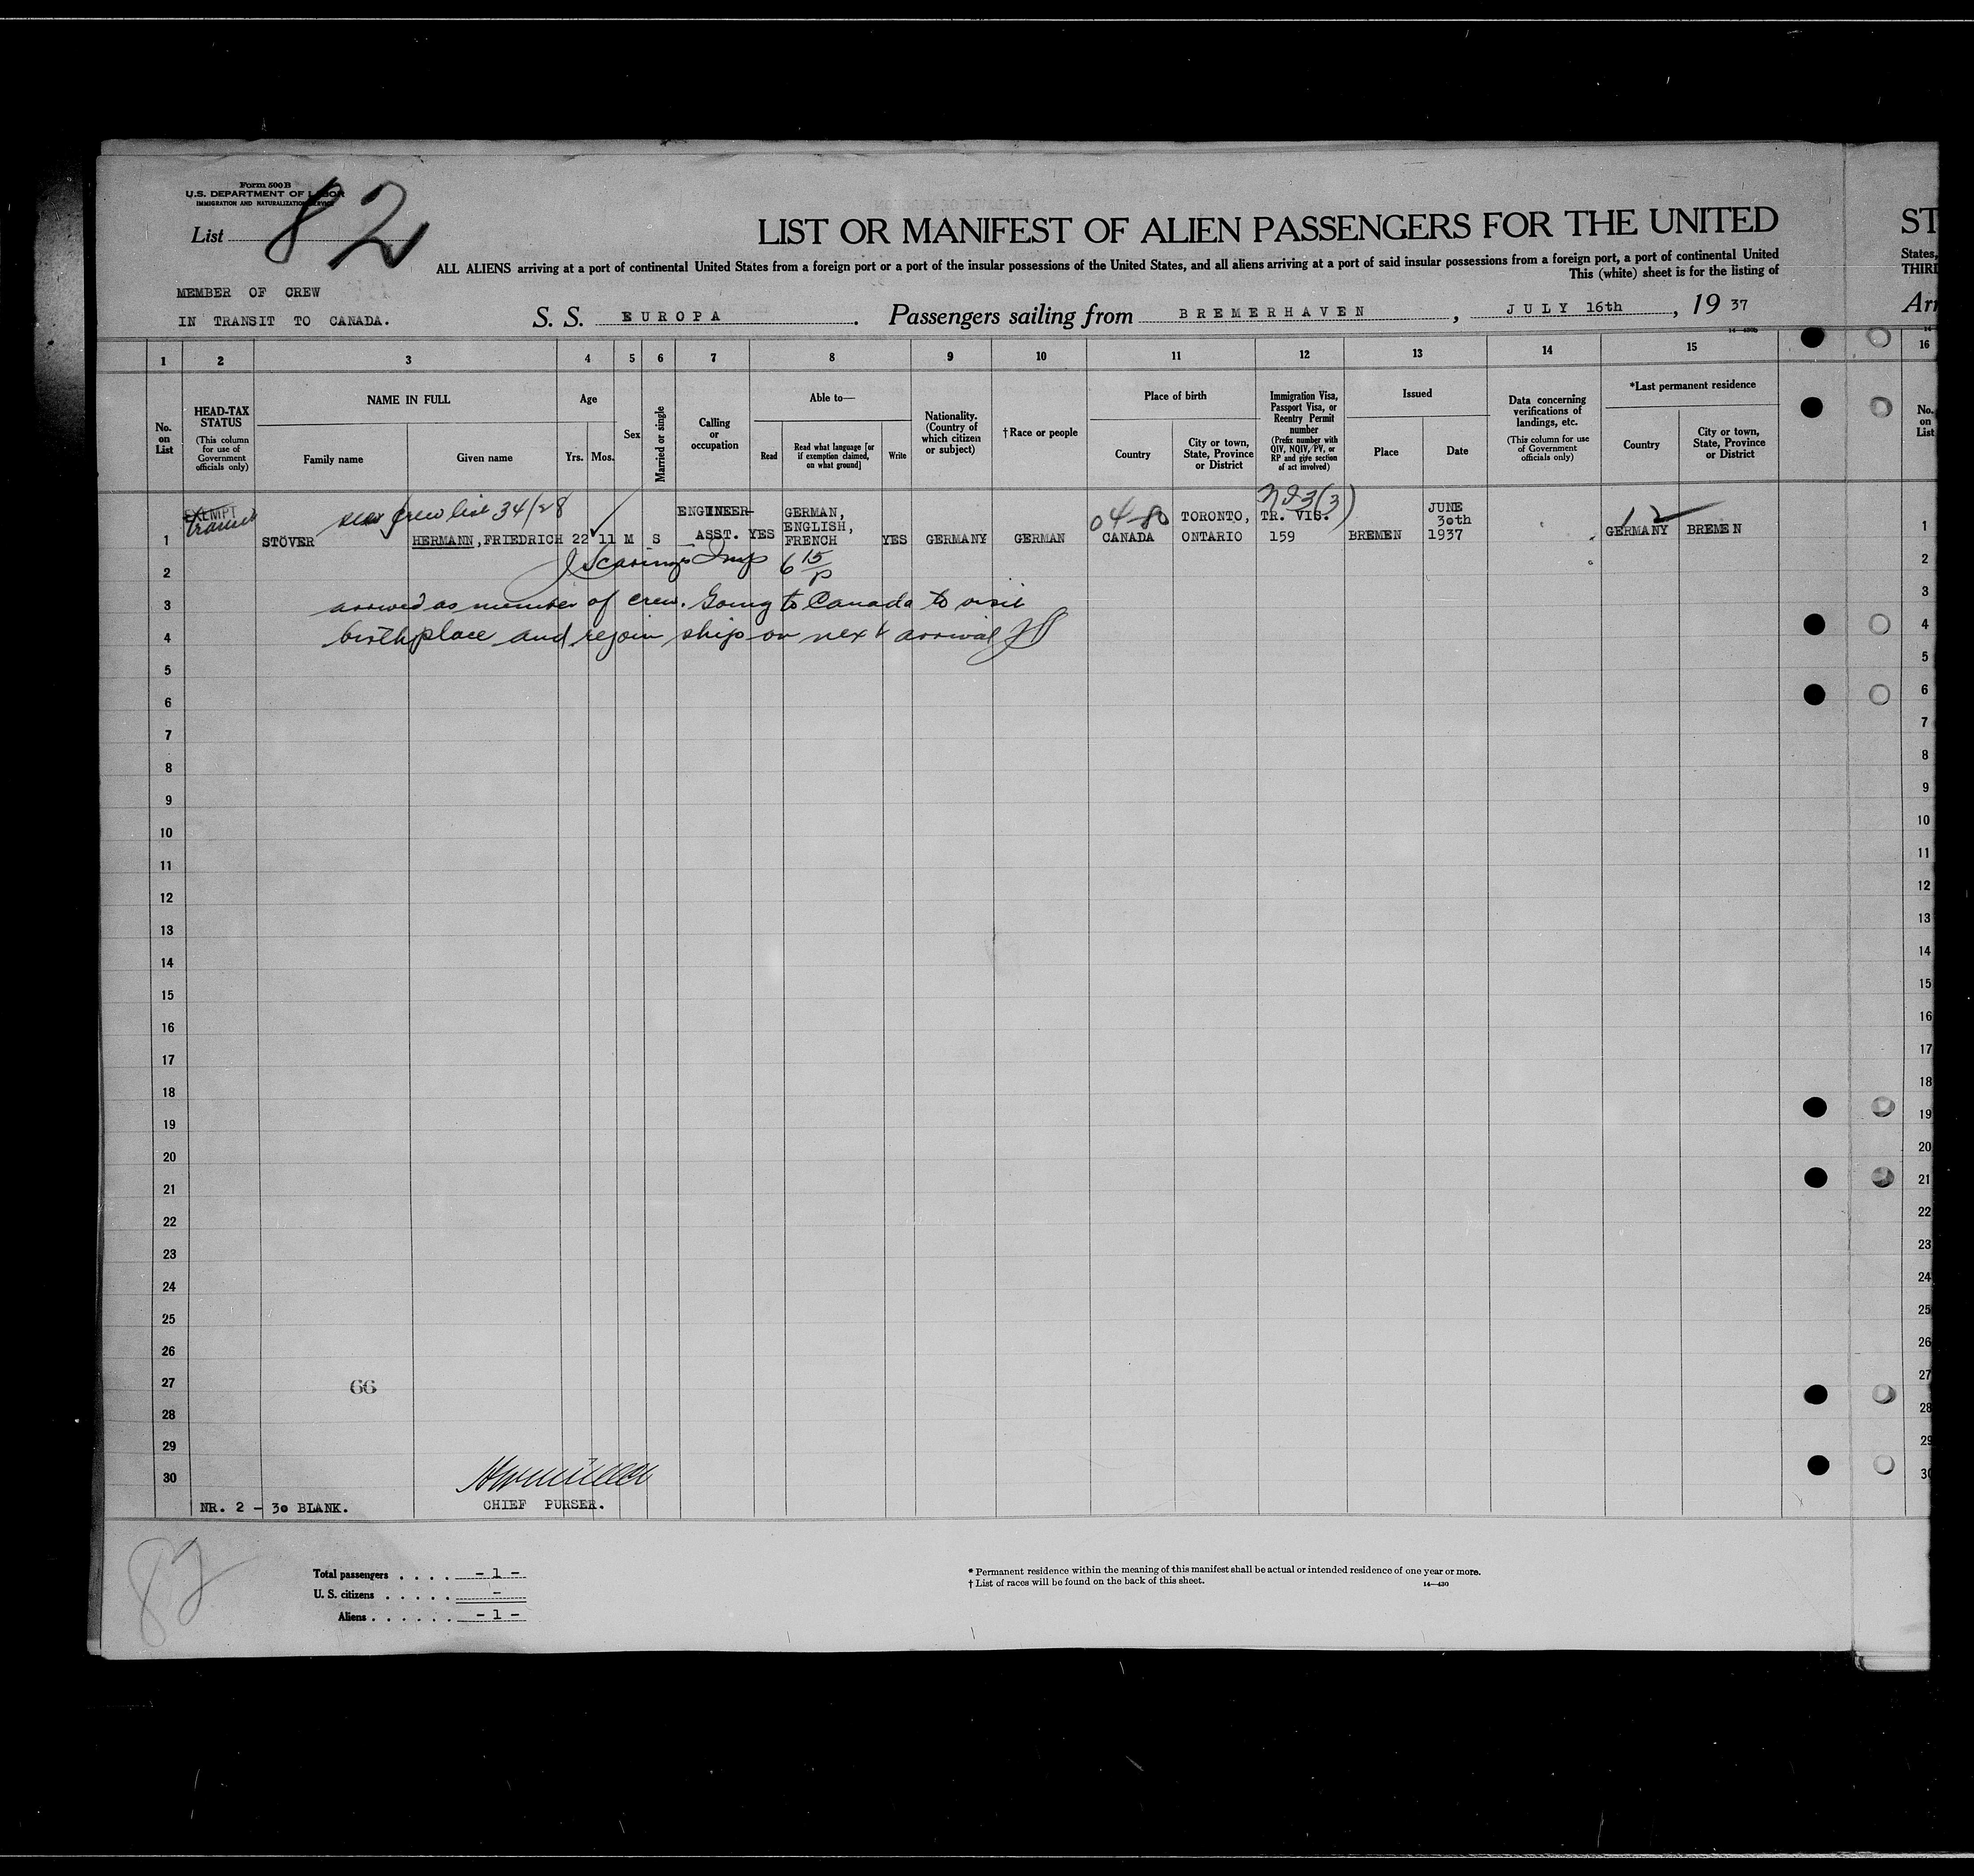 Form 500 B
U.S. DEPARTMENT OF LABOR
IMMIGRATION AND NATURALIZATION SERVICE
List 82
LIST OR MANIFEST OF ALIEN PASSENGERS FOR THE UNITED
ST
ALL ALIENS arriving at a port of continental United States from a foreign port or a port of the insular possessions of the United States, and all aliens arriving at a port of said insular possessions from a foreign port, a port of continental United
States,
This (white) sheet is for the listing of
THIRD
MEMBER OF CREW
IN TRANSIT TO CANADA.
S. S. EUROPA. Passengers sailing from BREMERHAVEN, JULY 16th, 19 37
Arr
1 2 3 4 5 6 7 8 9 10 11 12 13 14 15 16
No. on List
HEAD-TAX STATUS
(This column for use of Government officials only)
NAME IN FULL
Family name
Given name
Age
Yrs.
Mos.
Sex
Married or single
Calling or occupation
Able to—
Read
Read what language [or if exemption claimed, on what ground]
Write
Nationality. (Country of which citizen or subject)
†Race or people
Place of birth
Country
City or town, State, Province or District
Immigration Visa, Passport Visa, or Reentry Permit number
(Prefix number with QIV, NQIV, PV, or RP and give section of act involved)
Issued
Place
Date
Data concerning verifications of landings, etc.
(This column for use of Government officials only)
*Last permanent residence
Country
City or town, State, Province or District
No. on List
EXEMPT
transit
crew list 34/28
04-80
3(3)
12
1 STÖVER HERMANN, FRIEDRICH 22 11 M S ENGINEER-ASST. YES GERMAN, ENGLISH, FRENCH YES GERMANY GERMAN CANADA TORONTO, ONTARIO TR. VIS. 159 BREMEN JUNE 30th 1937 GERMANY BREMEN 1
2 Insp 6 15/P 2
3 arrived as member of crew. Going to Canada to visit 3
4 birthplace and rejoin ship on next arrival 4
5 5
6 6
7 7
8 8
9 9
10 10
11 11
12 12
13 13
14 14
15 15
16 16
17 17
18 18
19 19
20 20
21 21
22 22
23 23
24 24
25 25
26 26
27 66 27
28 28
29 29
30 30
NR. 2 - 30 BLANK.
CHIEF PURSER.
82
Total passengers . . . . - 1 -
U. S. citizens . . . . . -
Aliens . . . . . . - 1 -
* Permanent residence within the meaning of this manifest shall be actual or intended residence of one year or more.
† List of races will be found on the back of this sheet.
14—430